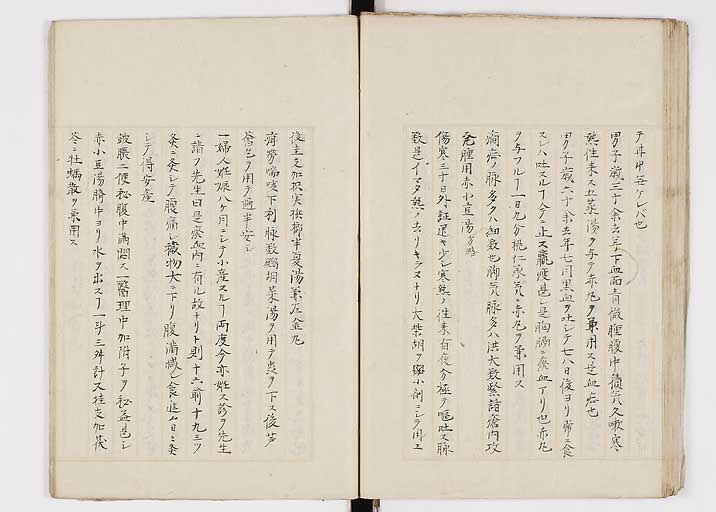 テ井中苓ケレバ也
男子歳三十余去年下血面ニ有微腫腹中積気久嗽寒
熱往来ス五菜湯ヲ与テ赤丸ヲ兼用ス是血症也
男子歳六十余去年七月黒血ヲ吐シテ七八日後ヨリ常ニ食
スレハ吐スル今ニ止ス羸痩甚シ是胸膈ニ瘀血アリ也赤丸
ヲ与フル一日九分桃仁承気ニ赤丸ヲ兼用ス
痼疥ノ脉多クハ細数也脚気ノ脉多ハ洪大数緊諸瘡内攻
腫用赤小豆湯方略
傷寒三十日外証退キ少シ寒熱ノ往来有夜分極テ嘔吐ス脉
数是イマタ熱ノ去リキラヌナリ大柴胡ヲ小剤ニシテ用ユ
後圭支加朮実梹榔半夏湯兼左金丸
労喘咳下利脉数瀉胡菜湯ヲ用テ糞ヲ下ス後
ヲ用テ過半安シ
一婦人妊娠八ケ月ニシテ小産スル両度今亦姙ス診ヲ先生
ニ請フ先生曰是瘀血内ニ有ル故ナリト則十六俞十九三ツ
灸ニ灸シテ腹痛シ穢物大ニ下リ腹満減シ食進ム日ニ灸
シテ得安産
鼓脹二便秘腹中満悶ス一医理中加附子ヲ秘益甚シ
赤小豆湯臍中ヨリ水ヲ出ス一斗三舛計又桂支加茯
苓ニ牡蛎散ヲ兼用ス